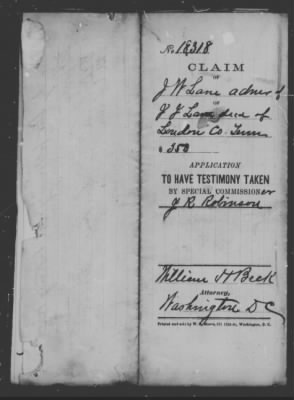 No 18318
CLAIM
OF
J W Lane admr of
OF
J J Lane decd of
Loudon Co Tenn
$ 350
APPLICATION
TO HAVE TESTIMONY TAKEN
BY SPECIAL COMMISSIONER
J R Robinson
William H Beck
Attorney,
Washington D C
Printed and sold by W. H. Washington, D. C.